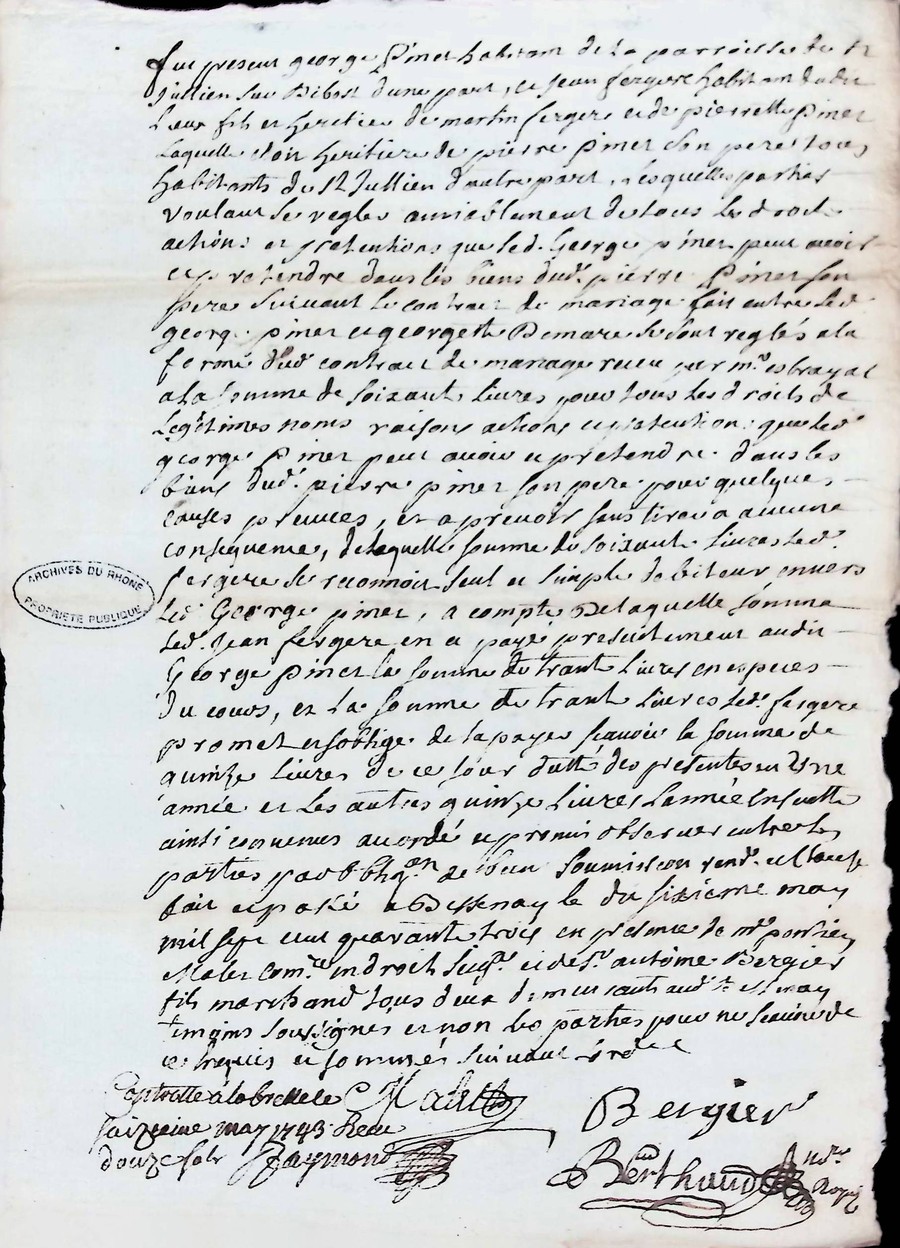 fut present george Pinet habitant de la parroisse de St
Jullien sur Bibost d'une part, et jean fergere habitant dudit
Lieux fils et heritier de martin fergere et de pierrette Pinet
Laquelle étoit heritiere de pierre pinet son pere tous
habitants de St Jullien d'autre part, Lesquelles parties
voulant se regler amiablement de tous les droits
actions et pretentions que led. George pinet peut avoir
et pretendre dans les biens dud. pierre Pinet son
pere suivant le contract de mariage fait entre led.
george pinet et georgette Demare se sont reglés a la
forme dud contract de mariage receu par me. esbrayat
a la somme de soixante Livres pour tous les droits de
Legitimes noms raisons actions et pretention que led.
george pinet peut avoir et pretendre dans les
biens dud. pierre pinet son pere pour quelques
causes preuues, et a prevoir sans tirer a aucune
consequence, de laquelle somme de soixante Livres led.
fergere se reconnoit seul et simple debiteur envers
led. George pinet, a compte De laquelle somme
led. Jean fergere en a payé presentement audit
George pinet la somme de trante Livres en especes
du cours, et la somme de trante Livres led. fergere
promet et soblige de la payer scauoir la somme de
quinze Livres de ce jour datté des presentes en Une
année et les autres quinze Livres Lannée ensuitte
ainsi convenus accordé et promis observer entre les
parties par obligon de bien soumission rend. et clause
fait et passé a Bessenay le du sizieme may
mil sept cent quarante trois en presence de me
Malet Comre. en droit seigx. et de sr. antoine Bergier
fils marchand tous deux demeurants aud. may
temoins soussignes et non les parties pour ne scavoir de
ce requis et sommés suivant L'ord
Controllé a la bresle le
saizeime may 1743 Receu
douze sols Raymond
Malet
Bergier
Berthaud Nore. Royal
ARCHIVES DU RHONE
PROPRIETE PUBLIQUE